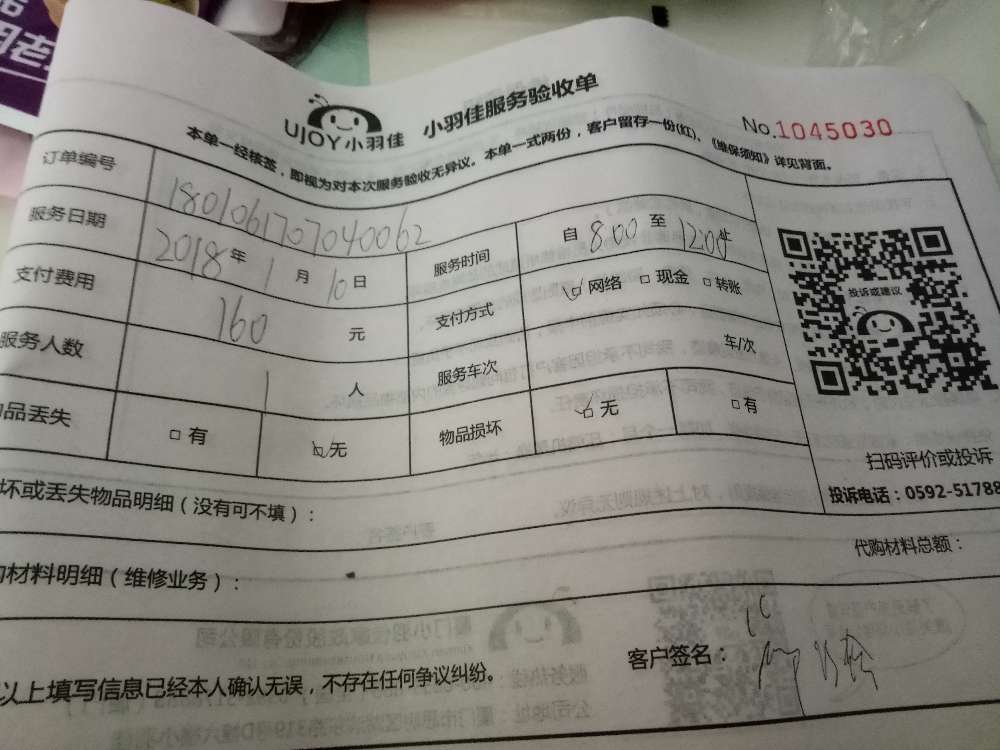 UJOY小羽佳 小羽佳服务验收单
No.1045030
本单一经核签，即视为对本次服务验收无异议。本单一式两份，客户留存一份(红)、《维保须知》详见背面。
订单编号 1801061707040062
服务日期 2018年1月10日 服务时间 自8:00至12:00
支付费用 160元 支付方式 网络 现金 转账
服务人数 1人 服务车次 车/次
品丢失 有 无 物品损坏 无 有
投诉或建议
扫码评价或投诉
投诉电话：0592-51788
坏或丢失物品明细（没有可不填）：
材料明细（维修业务）： 代购材料总额：
以上填写信息已经本人确认无误，不存在任何争议纠纷。 客户签名：